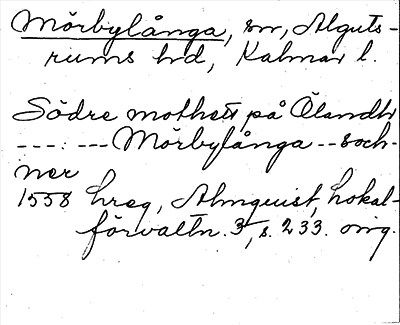 Mörbylånga, sn, Alguts-
rums hd, Kalmar l.
Södre mothett på Ölandh
---: --- Mörbylånga -- soch-
ner
1558 hreg, Almquist, Lokal-
förvaltn. 3, s. 233. orig.